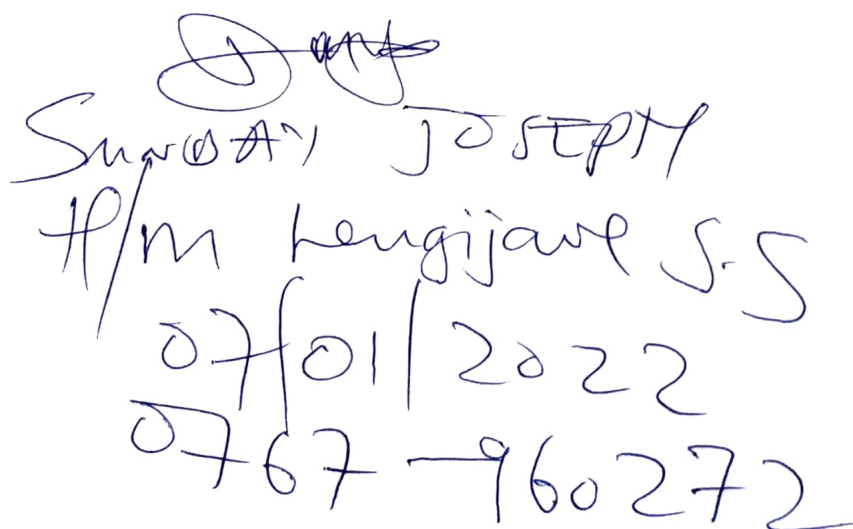 SUNDAY JOSEPH
H/M Lengijave S.S
07/01/2022
0767-960272